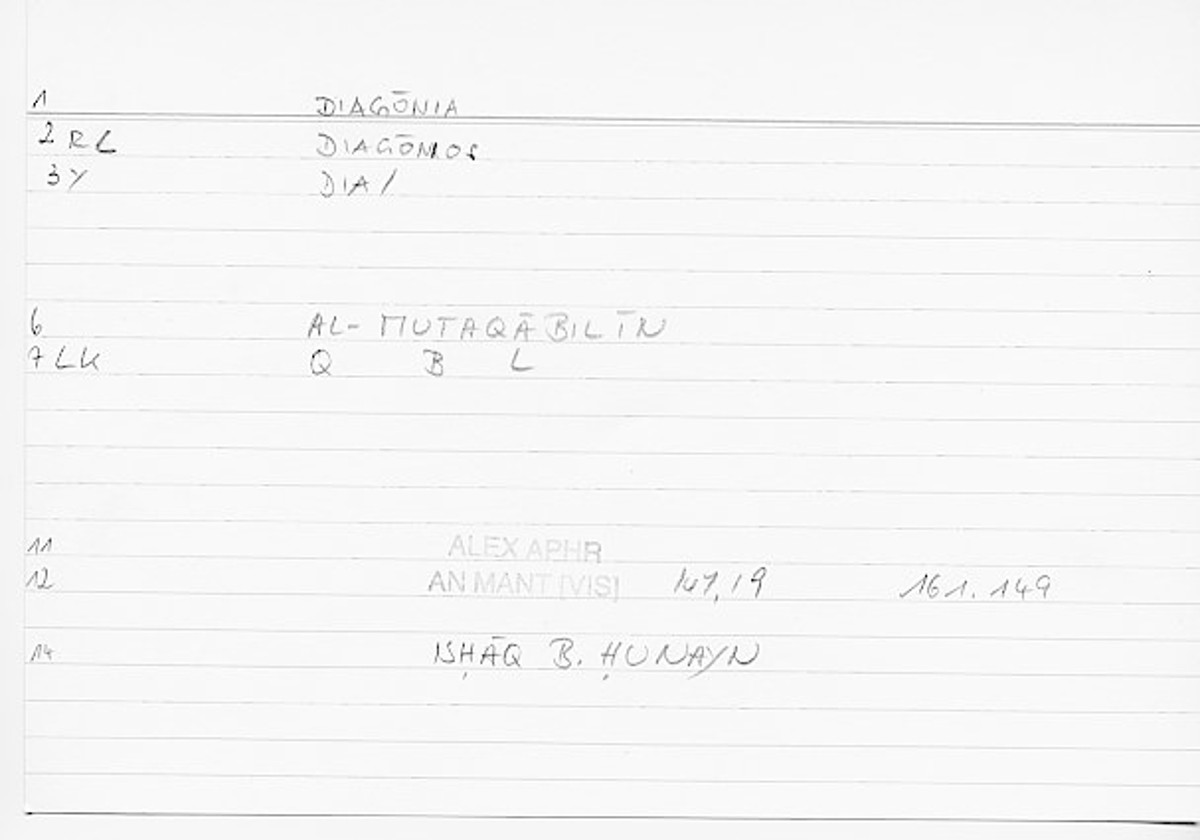 1 DIAGŌNIA
2 RL DIAGŌNIOS
3 Y DIA/
6 AL- MUTAQĀBILĪN
7 LK Q B L
11 ALEX APHR
12 AN MANT [VIS] 147,19 161.149
14 ISḤĀQ B. ḤUNAYN